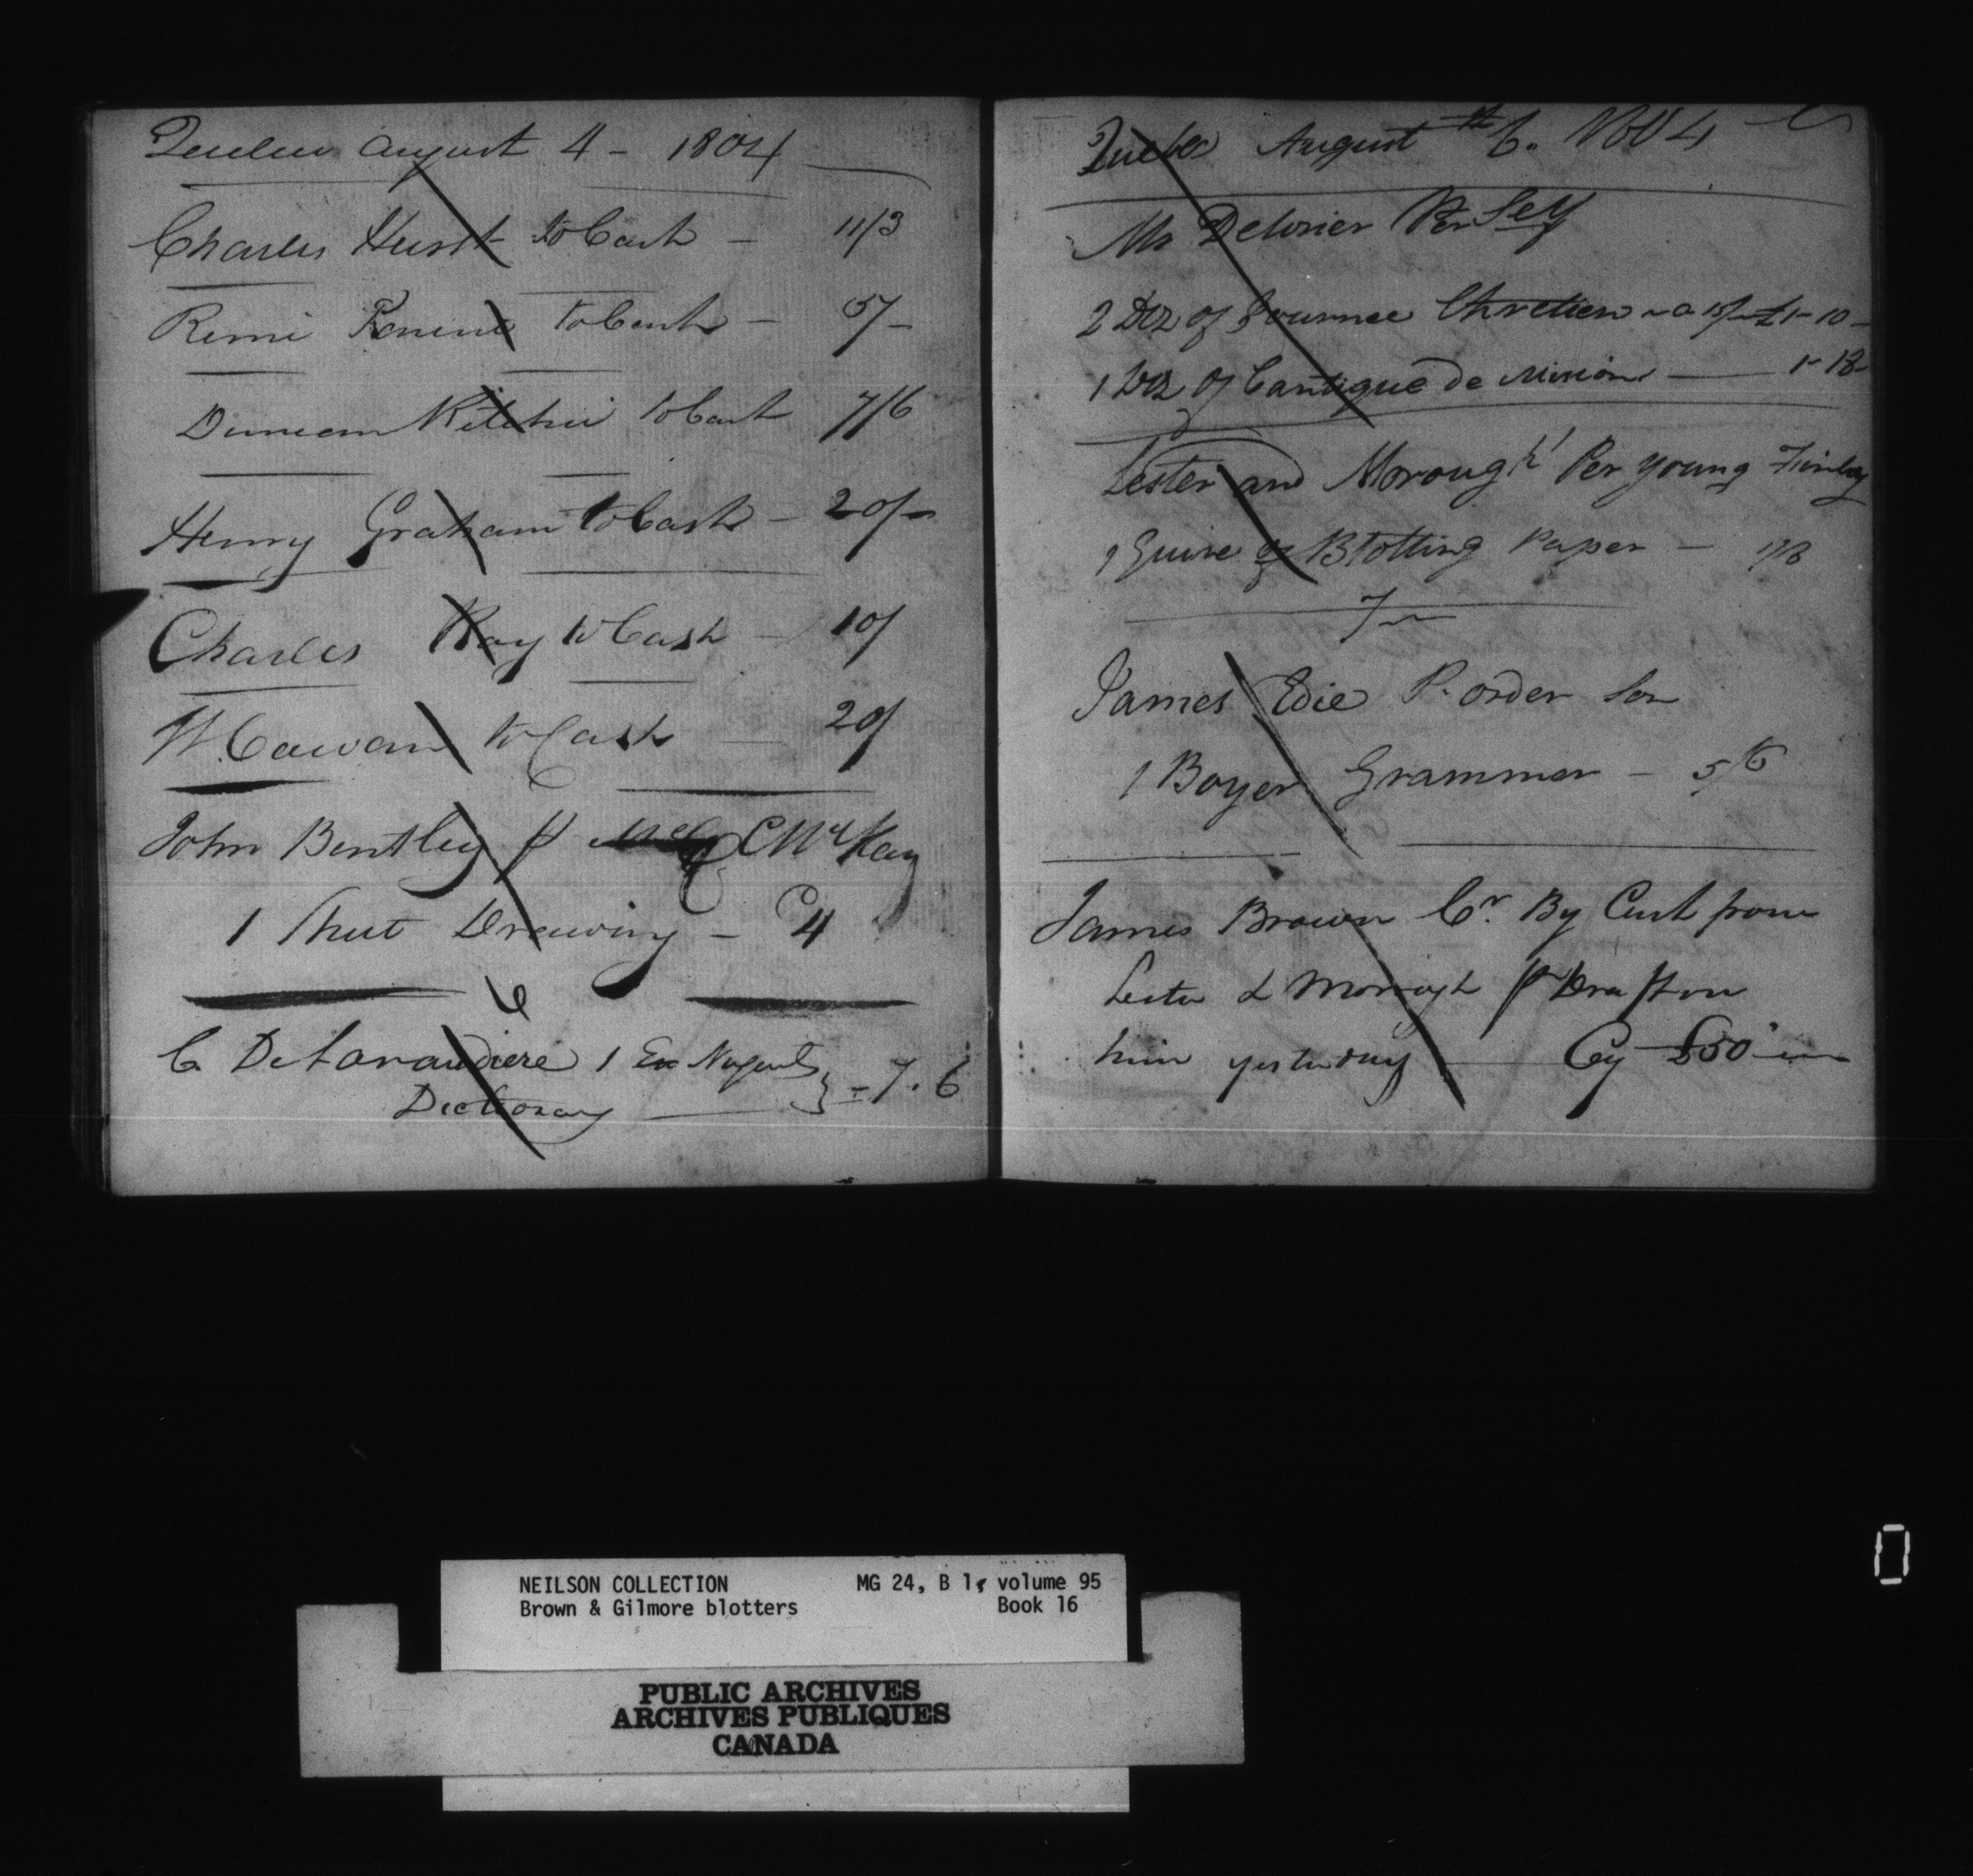 Quebec August 4 - 1804
Charles Hurst to Cash - 11/3
Remi to Cash - 5/-
Duncan Ritchie to Cash 7/6
Henry Graham to Cash - 20/-
Charles Ray to Cash - 10/
W. Cowan to Cash - 20/
John Bentley p C McKay
1 Sheet Drawing - 4
6
C Delanaudiere 1 Nugents
Dictionary - 7.6
Quebec August 6th 1804
Mr Delorier Per Self
2 Doz of Journee Chretien a 15/- £1-10-
1 Doz of Cantique de Mision - 1-18-
Lester and Morough Per young Finlay
1 Quire of Blotting Paper - 1/8
7
James Edie P. order for
1 Boyer Grammer - 5/6
James Brown Cr. By Cash from
Lester & Morrogh p Draft on
him yesterday Cy £50
NEILSON COLLECTION MG 24, B 1, volume 95
Brown & Gilmore blotters Book 16
PUBLIC ARCHIVES
ARCHIVES PUBLIQUES
CANADA
0